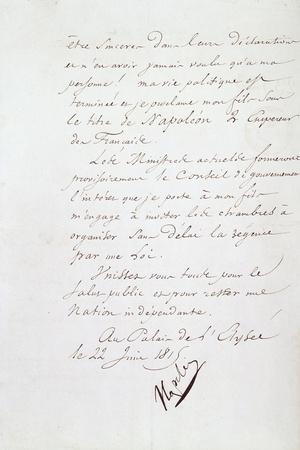 être sinceres dans leurs déclarations
et n'en avoir jamais voulu qu'a ma
personne! ma vie politique est
terminée et je proclame mon fils sous
le titre de Napoléon 2 Empereur
des Français.
Les Ministres actuels formeront
provisoirement le Conseil de gouvernement
l'intéret que je porte à mon fils
m'engage à inviter les chambres à
organiser sans délai la régence
par une loi.
Unissez vous tous pour le
salut public et pour rester une
Nation indépendante.
Au Palais de l'Elysée
le 22 Juin 1815